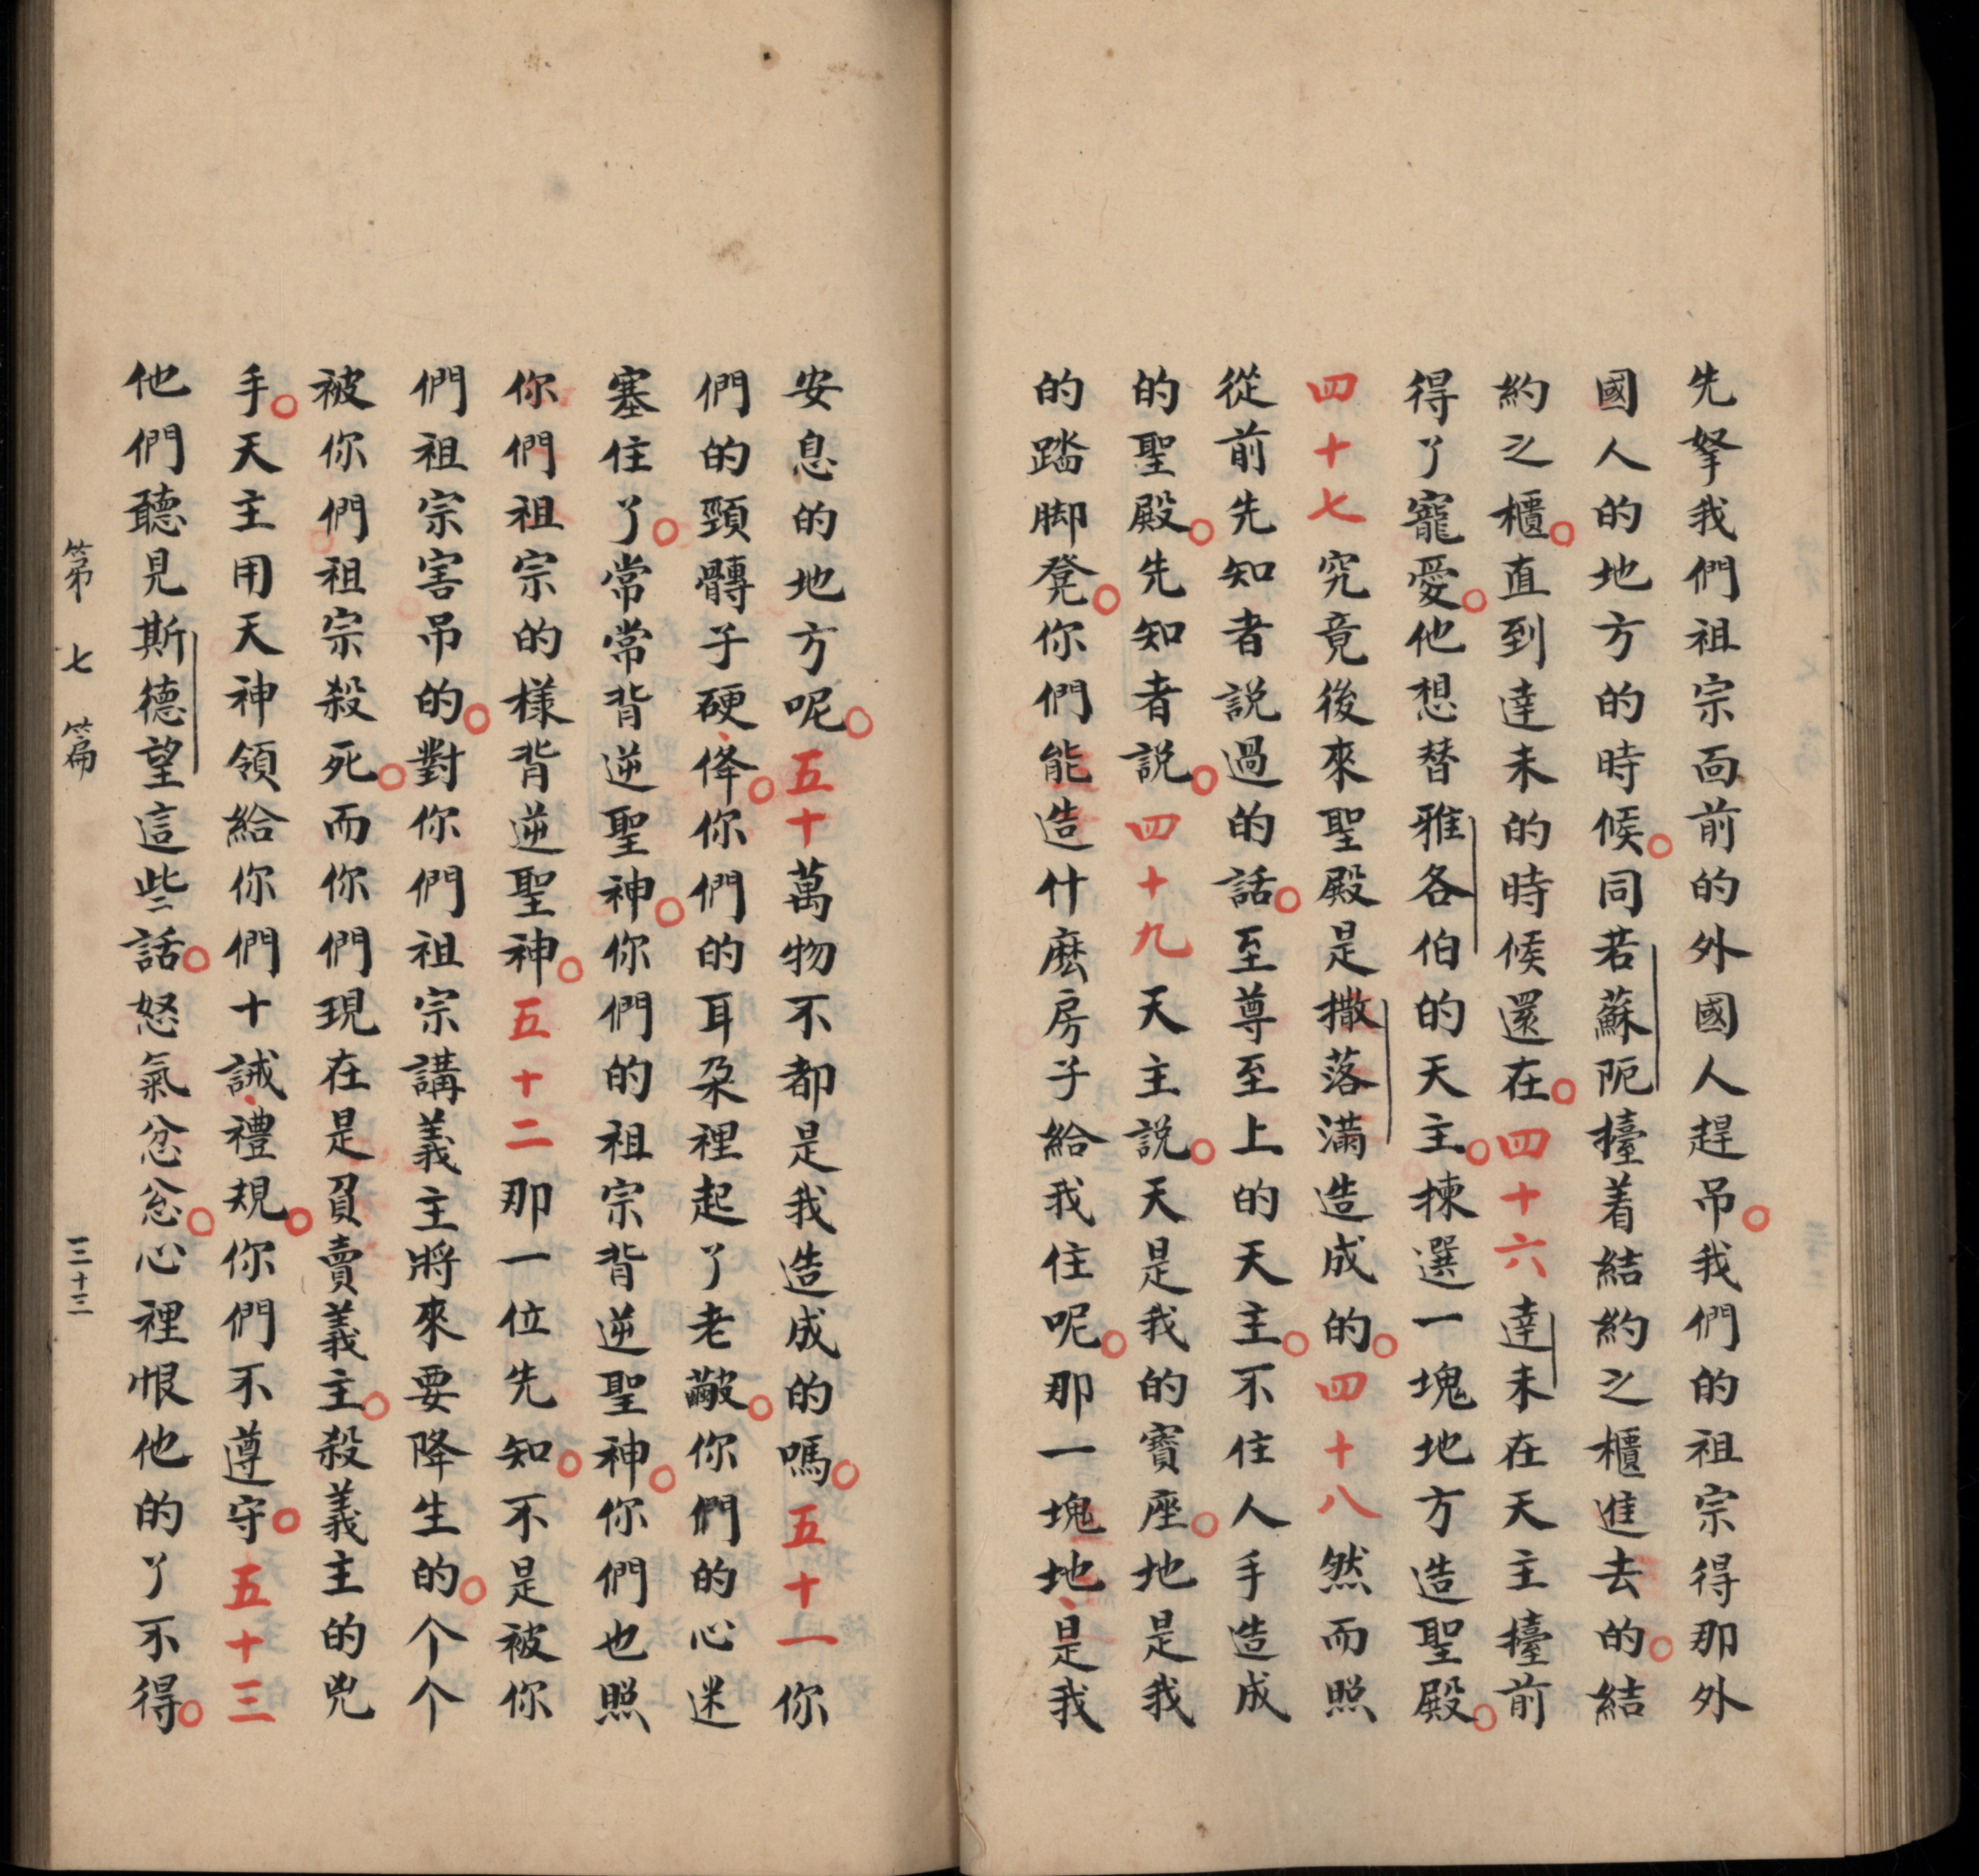 先拏我們祖宗面前的外國人趕吊。我們的祖宗得那外
國人的地方的時候。同若蘇阨擡着結約之櫃進去的。結
約之櫃。直到達未的時候還在。四十六達未在天主擡前
得了寵愛。他想替雅各伯的天主。揀選一塊地方造聖殿。
四十七究竟後來聖殿是撒落滿造成的。四十八然而照
從前先知者説過的話。至尊至上的天主。不住人手造成
的聖殿。先知者説。四十九天主説。天是我的寶座。地是我
的踏脚凳。你們能造什麽房子給我住呢。那一塊地、是我
安息的地方呢。五十萬物不都是我造成的嗎。五十一你
們的頸髆子硬、佭。你們的耳朶裡起了老皵。你們的心迷
塞住了。常常背逆聖神。你們的祖宗背逆聖神。你們也照
你們祖宗的樣背逆聖神。五十二那一位先知。不是被你
們祖宗害吊的。對你們祖宗講義主將來要降生的。个个
被你們祖宗殺死。而你們現在是負賣義主。殺義主的兇
手。天主用天神領給你們十誡、禮規。你們不遵守。五十三
他們聽見斯德望這些話。怒氣忿忿。心裡恨他的了不得。
第七篇 三十三